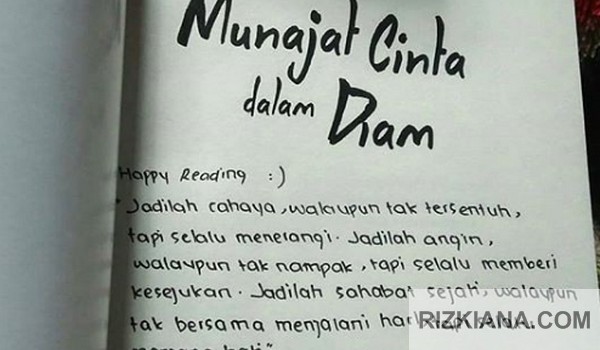 Munajat Cinta
dalam Diam
Happy Reading :)
"Jadilah cahaya, walaupun tak tersentuh,
tapi selalu menerangi. Jadilah angin,
walaupun tak nampak, tapi selalu memberi
kesejukan. Jadilah sahabat sejati, walaupun
tak bersama menjalani hari, tapi selalu
RIZKIANA.COM